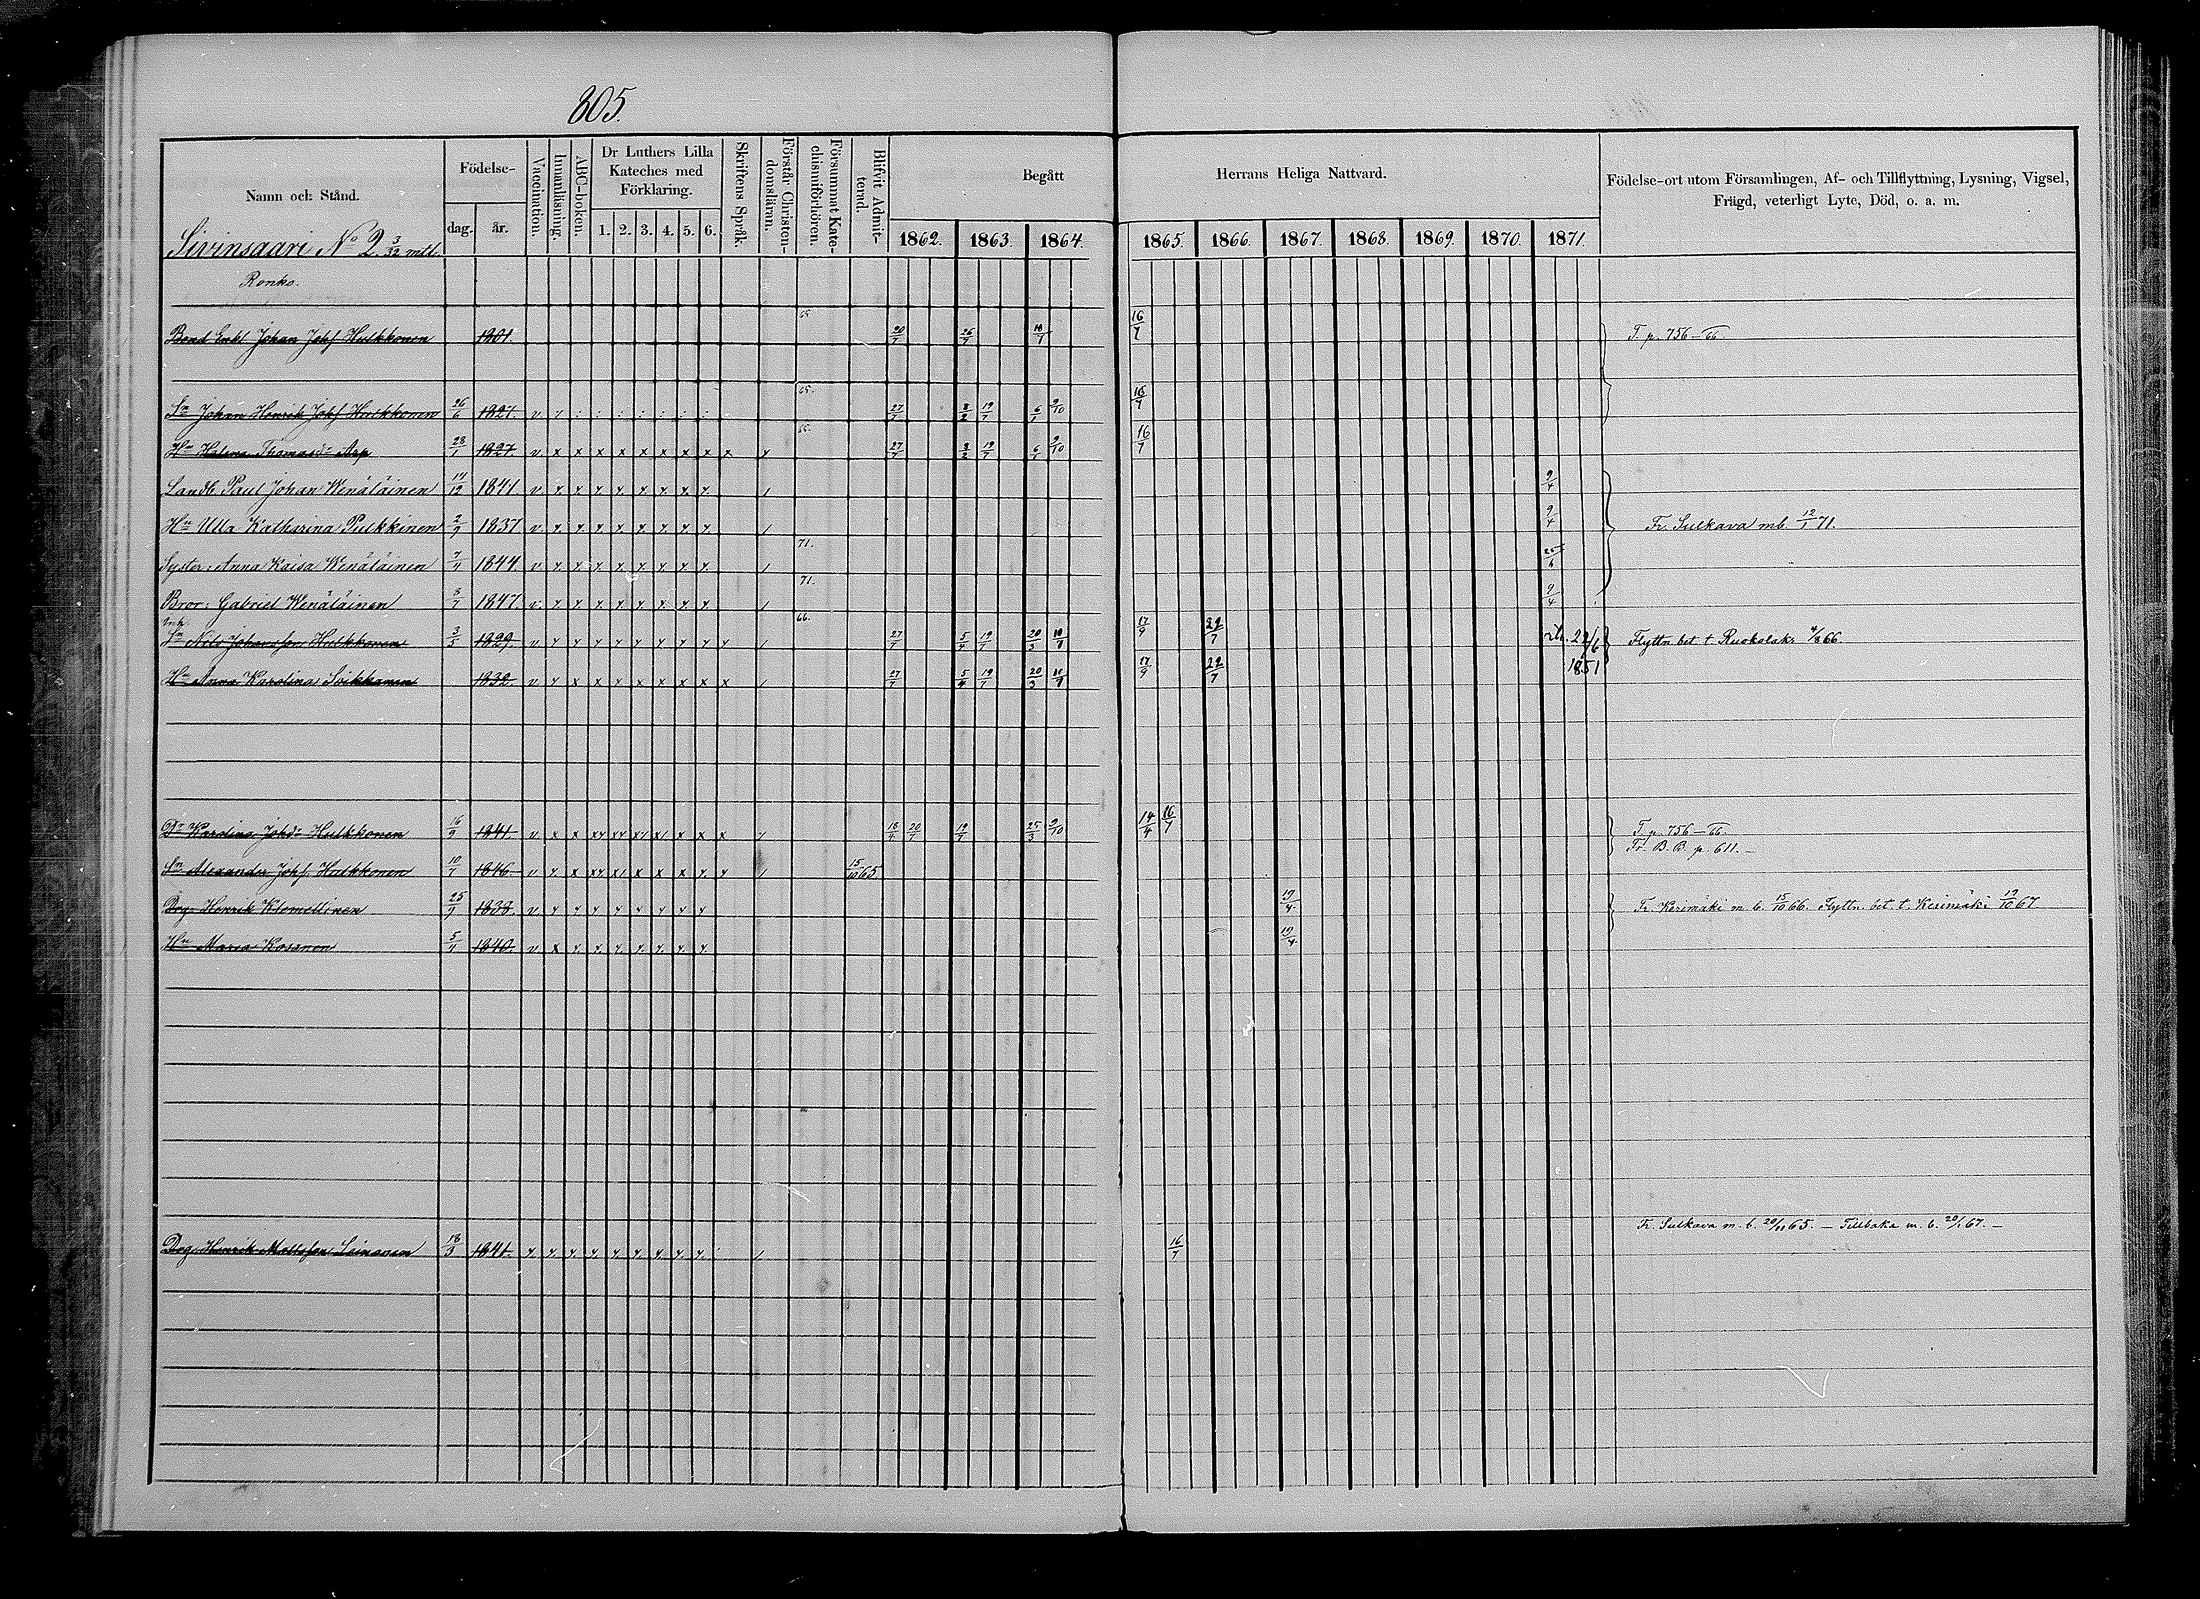 805.
Namn och Stånd. Födelse- dag. år. Vaccination. Innanläsning. ABC-boken. Dr Luthers Lilla Kateches med Förklaring. 1. 2. 3. 4. 5. 6. Skriftens Språk. Förstår Christendomsläran. Försummat Katechismiförhören. Blifvit Admitterad. Begått Herrans Heliga Nattvard. Födelse-ort utom Församlingen, Af- och Tillflyttning, Lysning, Vigsel, Frägd, veterligt Lyte, Död, o. a. m.
1862. 1863. 1864. 1865. 1866. 1867. 1868. 1869. 1870. 1871.
Sivinsaari No 2. 3/32 mtl.
Ronko.
Bond Enkl Johan Johsf Hulkkonen 1801. 65 20/7 26/7 10/7 16/7 T. p. 756 – 66.
Sn Johan Henrik Johsf Hulkkonen 26/6 1827. v 65. 27/7 8/2 19/7 6/1 9/10 16/7
Hu Helena Thomasdr Asp 28/1 1827. v x x x x x x x x x 65. 27/7 8/2 19/7 6/1 9/10 16/7
Landb. Paul Johan Wenäläinen 14/12 1841 v 9/4
Hu Ulla Katharina Pulkkinen 2/9 1837 v 9/4 Fr. Sulkava mb 12/1 71.
Syster: Anna Kaisa Wenäläinen 7/4 1844. v 71. 25/6
Bror: Gabriel Wenäläinen 8/7 1847. v 71. 9/4
Sn Nils Johansson Hulkkonen 3/5 1829. v 66. 27/7 5/4 19/7 20/3 10/7 17/9 22/7 22/6 1851 Flyttn bet. t. Ruokolaks 4/8 66.
Hu Anna Karolina Soikkanen 1832. v 27/7 5/4 19/7 20/3 10/7 17/9 22/7
Dr Karolina Johdr Hulkkonen 16/9 1841 v 18/4 20/7 19/7 25/3 9/10 14/4 16/7 T. p. 756 – 66.
Fr. B. B. p. 611. –
Sn Alexander Johsf. Hulkkonen 10/7 1846. v 15/10 65
Drg. Henrik Klemettinen 25/9 1838. v 19/4 Fr. Kerimäki m. b. 15/10 66. Flyttn. bet t. Kerimäki 19/10 67
Hu Maria Kosonen 5/4 1840. v 19/4
Drg. Henrik Mattsson Leinonen 18/3 1841. 16/7 Fr. Sulkava m. b. 20/11 65. – Tillbaka m. b. 20/1 67. –